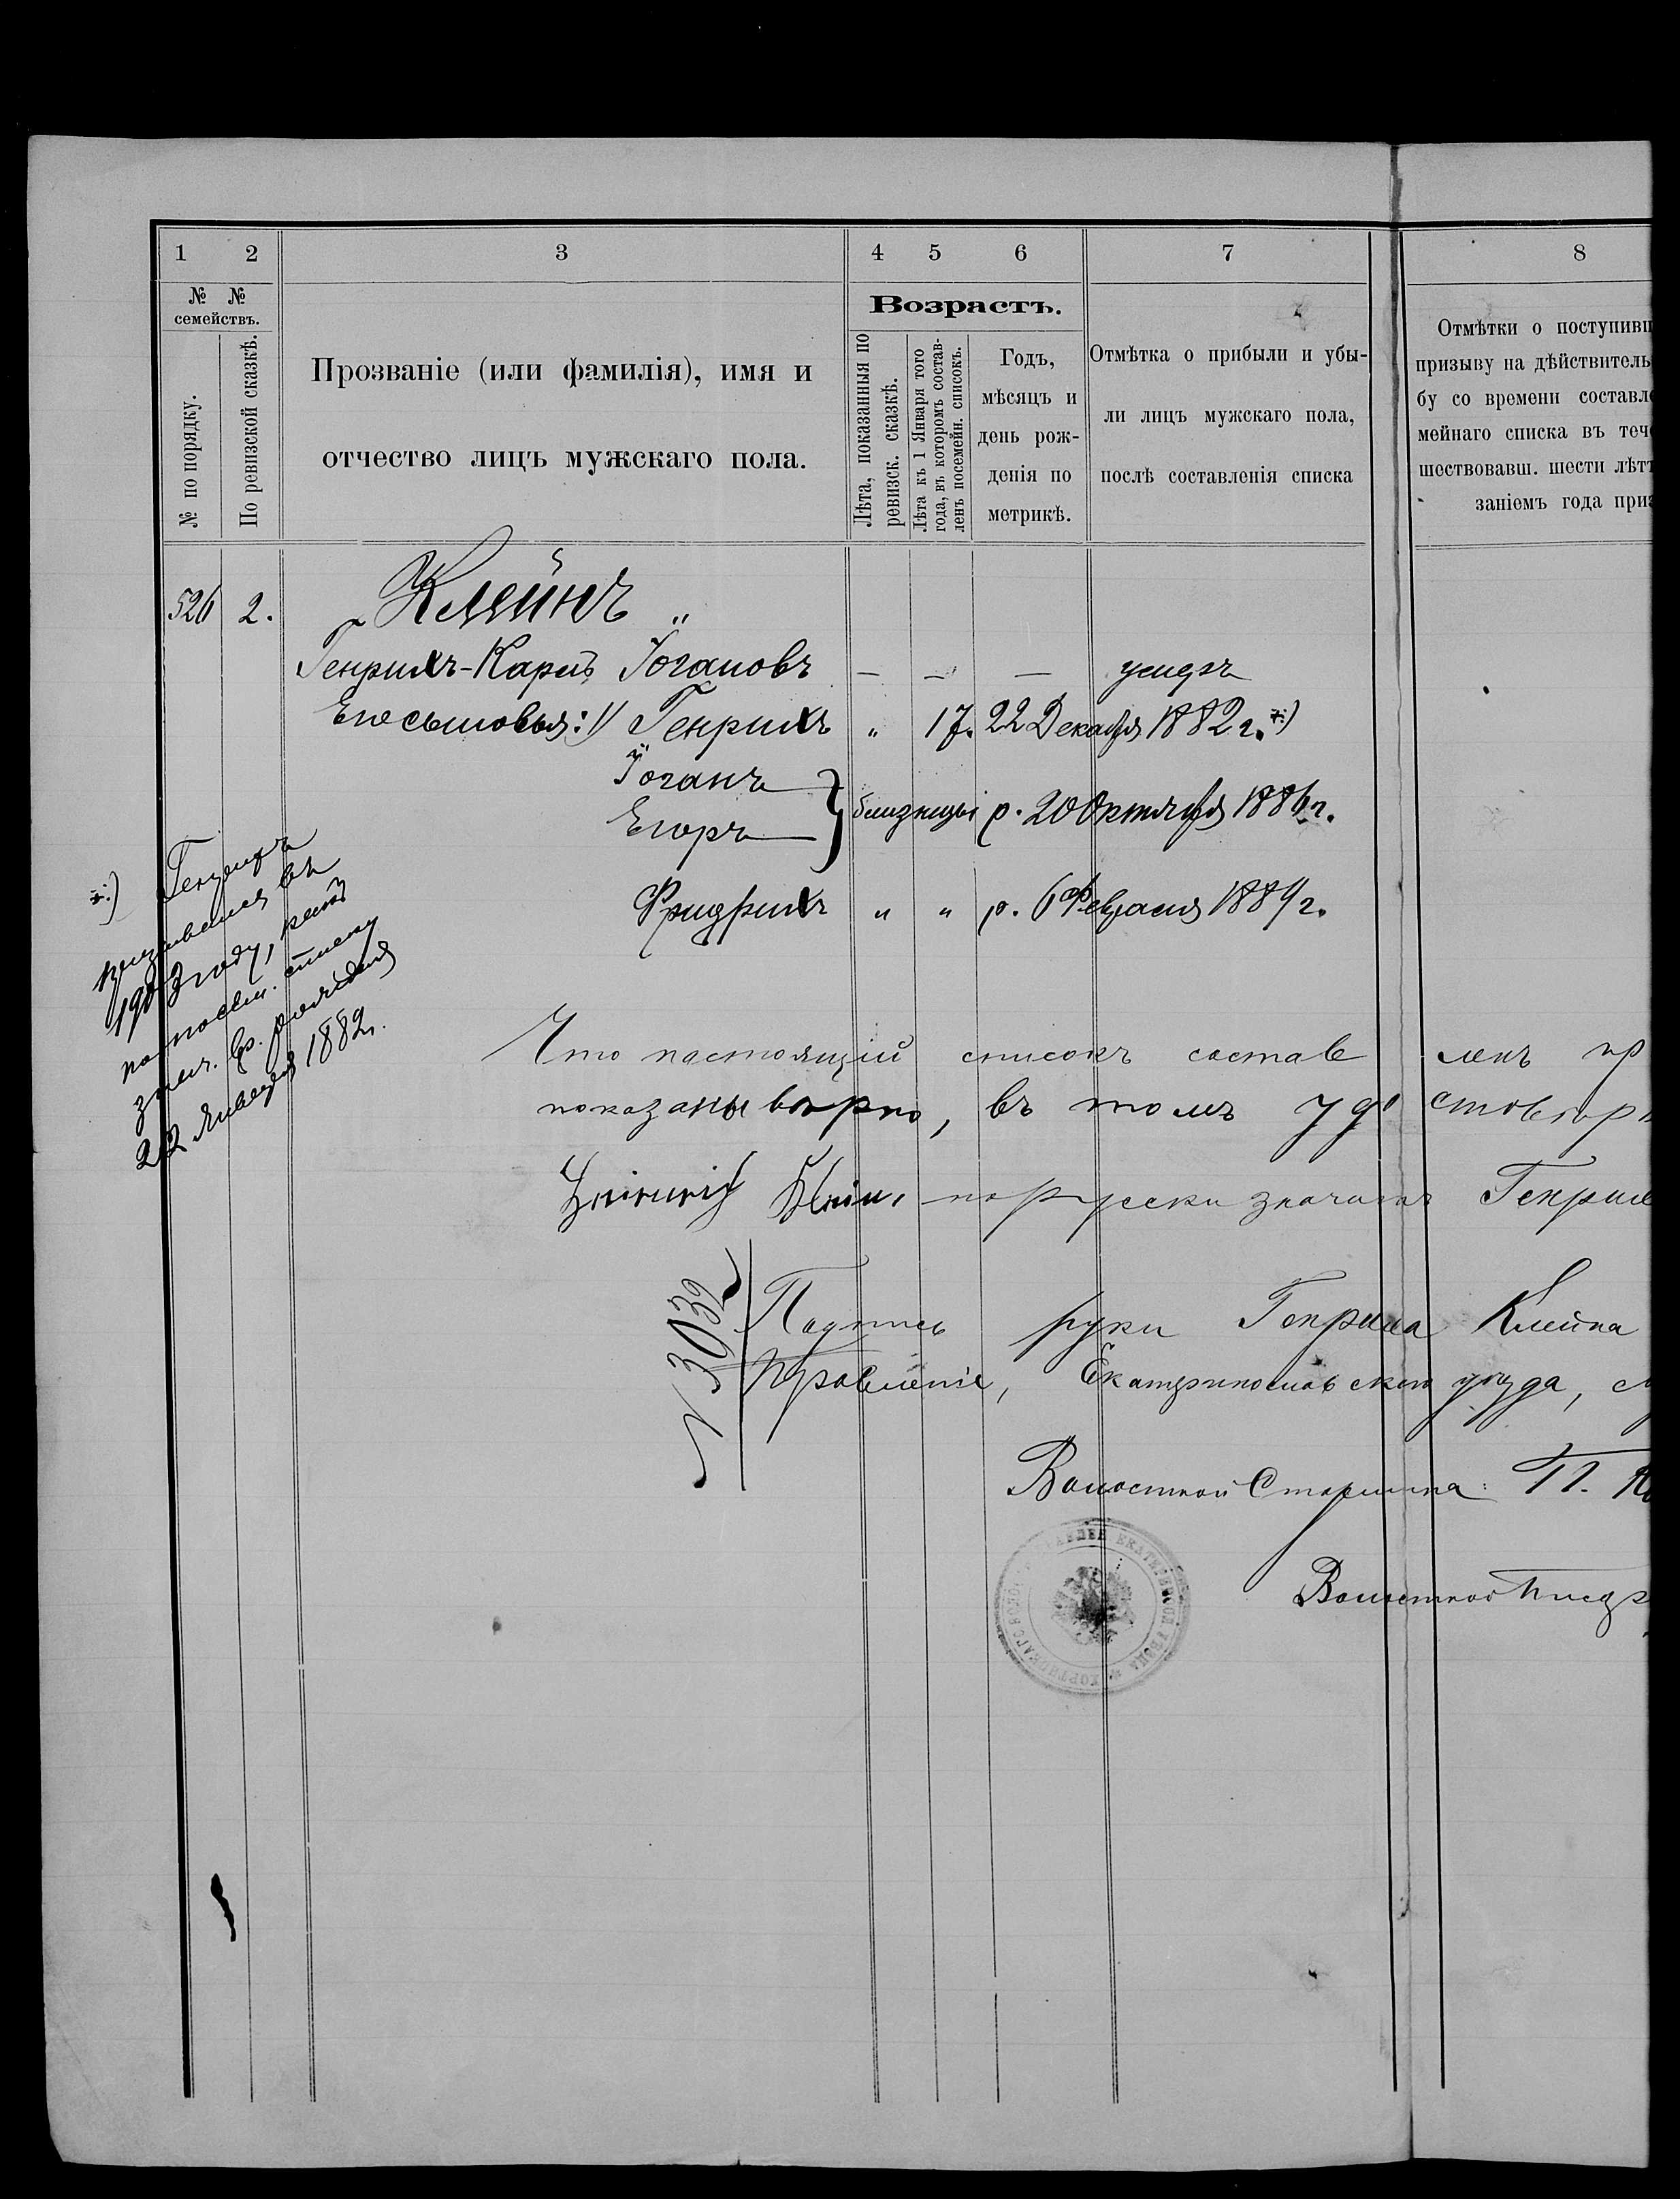 1 2 3 4 5 6 7 8
№ №
семействъ.
№ по порядку.
По ревизской сказкѣ.
Прозваніе (или фамилія), имя и
отчество лицъ мужскаго пола.
Возрастъ.
Лѣта, показанныя по
ревизск. сказкѣ.
Лѣта къ 1 Января того
года, въ которомъ состав-
ленъ посемейн. списокъ.
Годъ,
мѣсяцъ и
день рож-
денія по
метрикѣ.
Отмѣтка о прибыли и убы-
ли лицъ мужскаго пола,
послѣ составленія списка
Отмѣтки о поступивш
призыву на дѣйствитель
бу со времени составле
мейнаго списка въ теч
шествовавш. шести лѣтъ
заніемъ года приз
526 2. „Клейнъ„
Генрихъ-Карлъ Іогановъ — — — умеръ
Его сыновья: 1/ Генрихъ „ 17. 22 Декабря 1882 г. *)
Іоганъ
Егоръ } близнецы р. 20 Октября 1886 г.
Фридрихъ „ „ р. 6 Февраля 1889 г.
*) Генрихъ
призывался въ
1903 году,
по посем. списку
знач. Ев. рожденія
22 Января 1882 г.
Что настоящій списокъ составленъ пр
показаны вѣрно, въ томъ удостовѣр
Heinrich Klein, по русски значитъ Генрих
№ 3032
Подпись руки Генриха Клейна
Правленіе, Екатеринославскаго уѣзда, с
Волостной Старшина: П.
Волостной Писарь